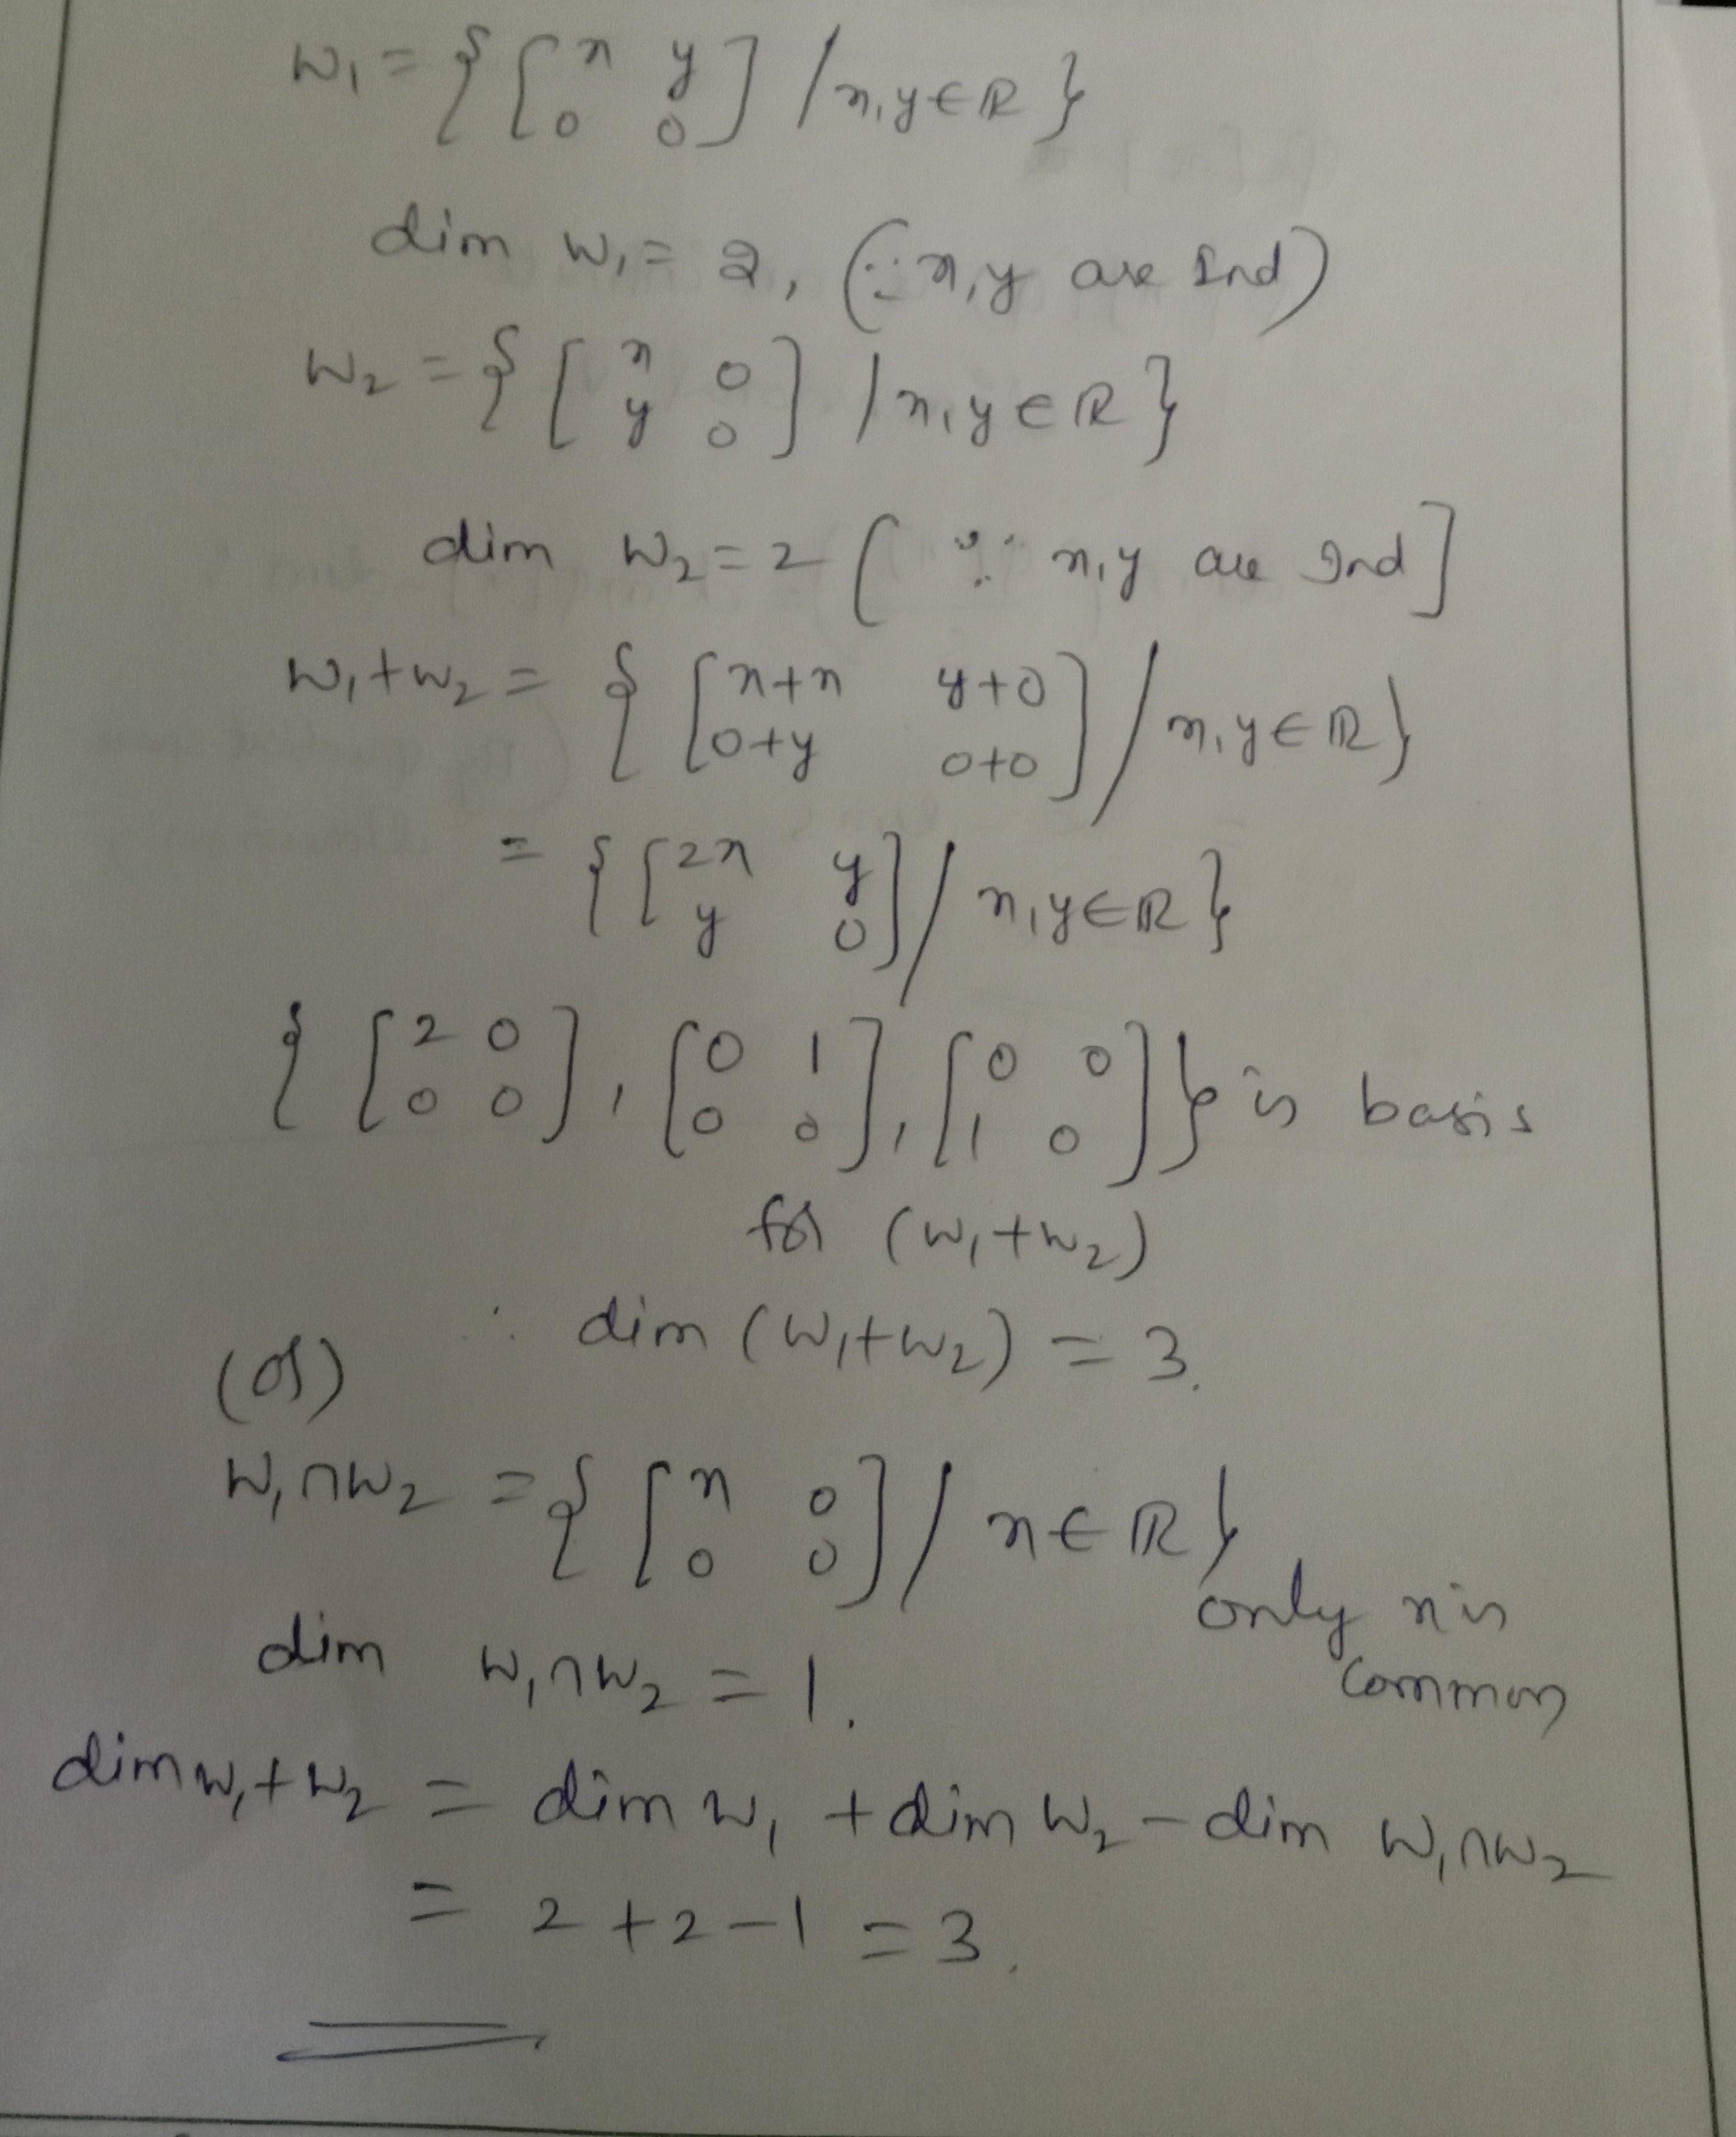 W₁ = { [ x y
0 0 ] / x, y ∈ ℝ }
dim W₁ = 2, (∵ x, y are Ind)
W₂ = { [ x 0
y 0 ] / x, y ∈ ℝ }
dim W₂ = 2 [ ∵ x, y are Ind ]
W₁ + W₂ = { [ x+x y+0
0+y 0+0 ] / x, y ∈ ℝ }
= { [ 2x y
y 0 ] / x, y ∈ ℝ }
{ [ 2 0
0 0 ], [ 0 1
0 0 ], [ 0 0
1 0 ] } is basis
for (W₁+W₂)
∴ dim (W₁+W₂) = 3.
(or)
W₁∩W₂ = { [ x 0
0 0 ] / x ∈ ℝ }
only x is
common
dim W₁∩W₂ = 1.
dim W₁+W₂ = dim W₁ + dim W₂ − dim W₁∩W₂
= 2 + 2 − 1 = 3.